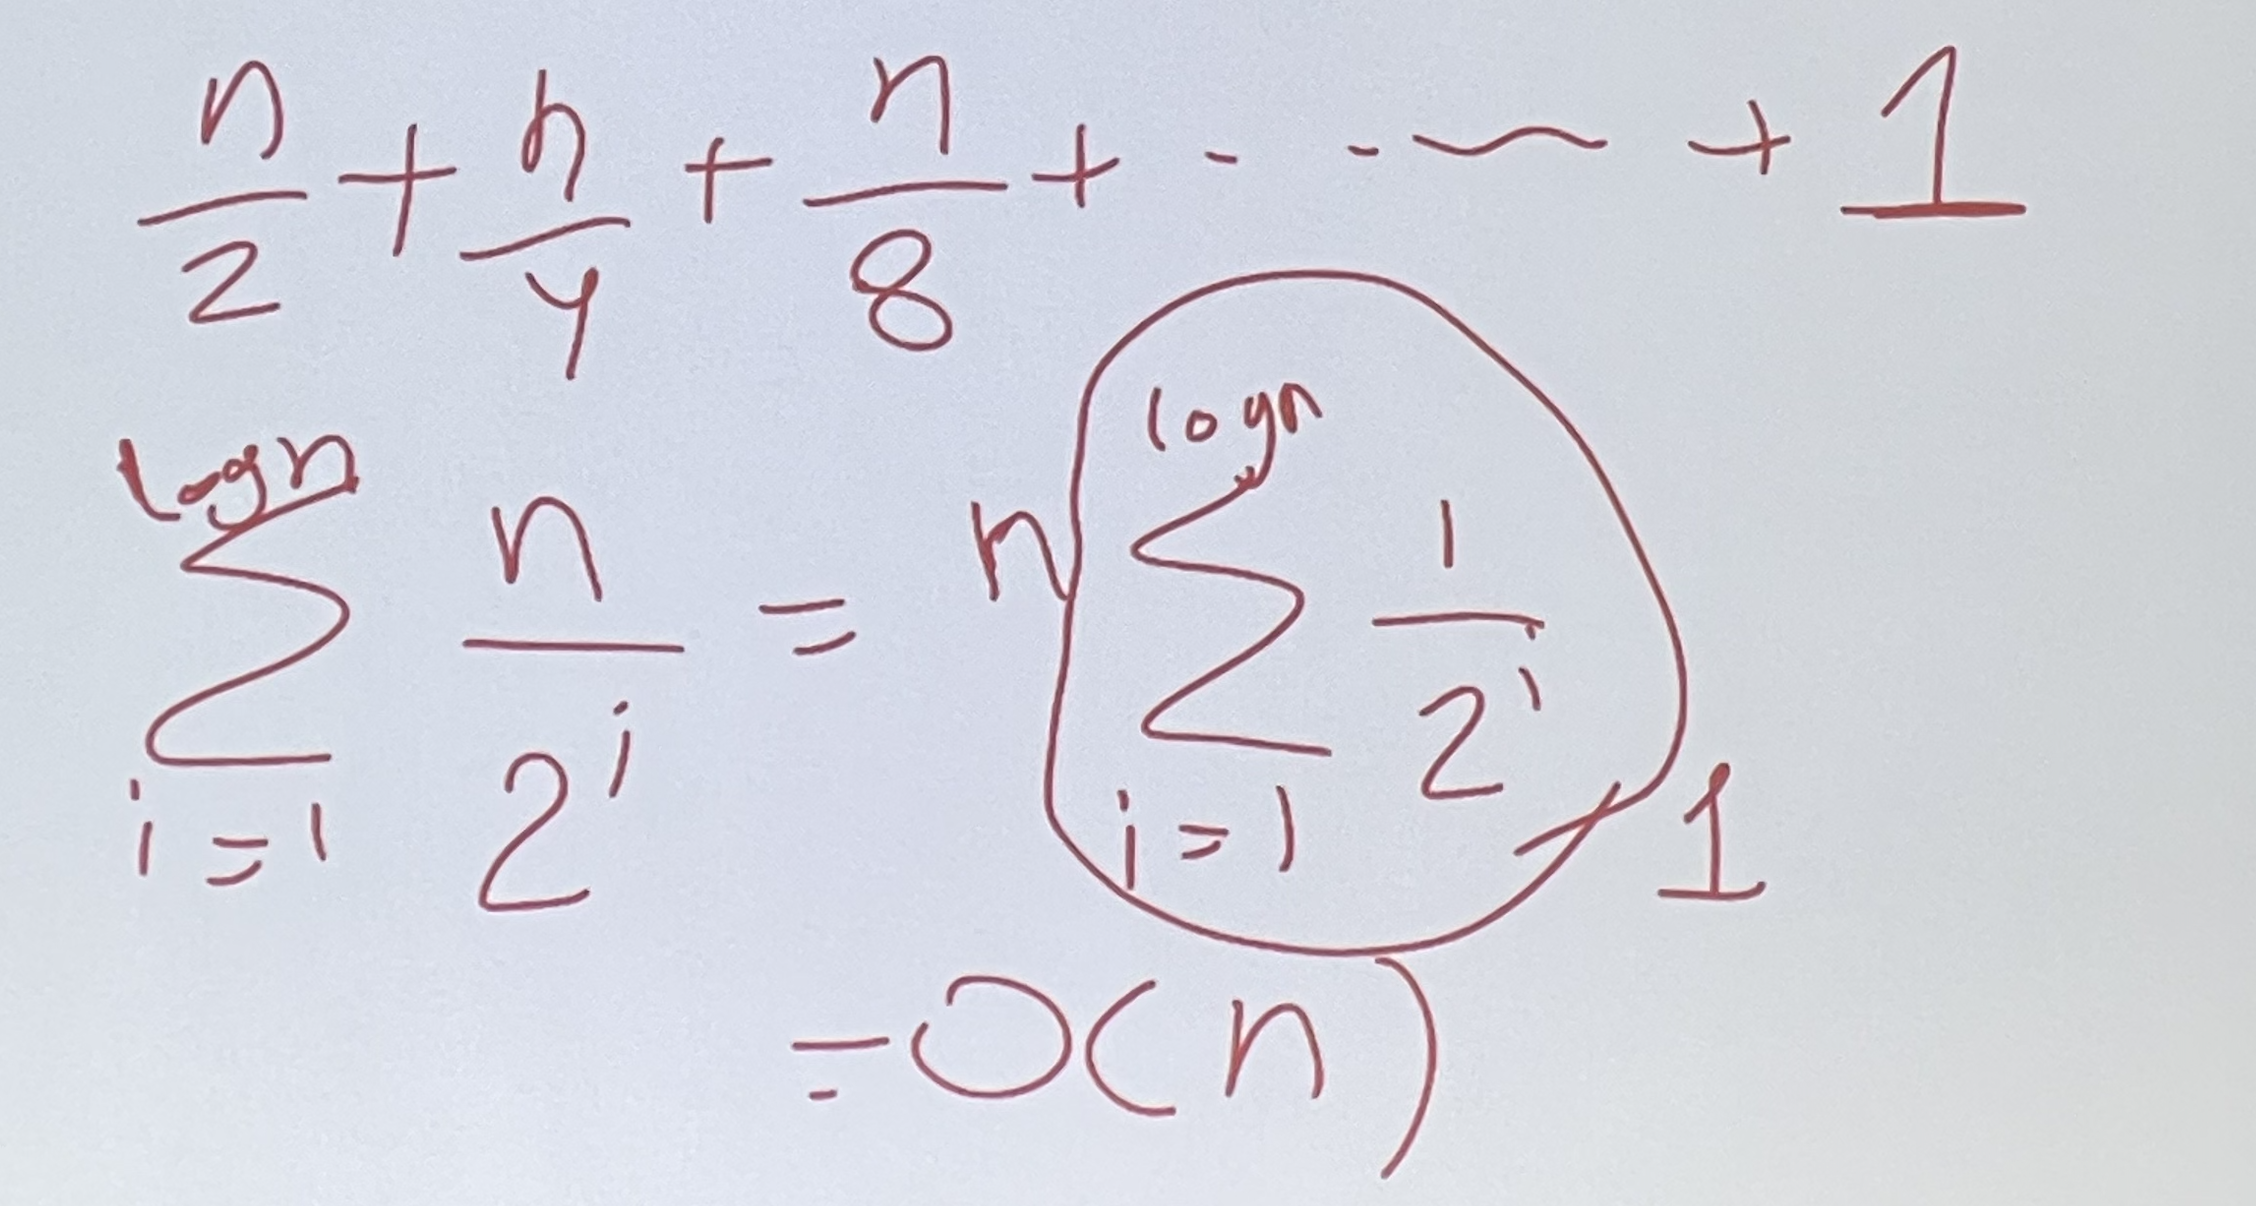 n/2 + n/4 + n/8 + - - ~ + 1
∑_{i=1}^{log n} n/2^i = n ∑_{i=1}^{log n} 1/2^i 1
= O(n)